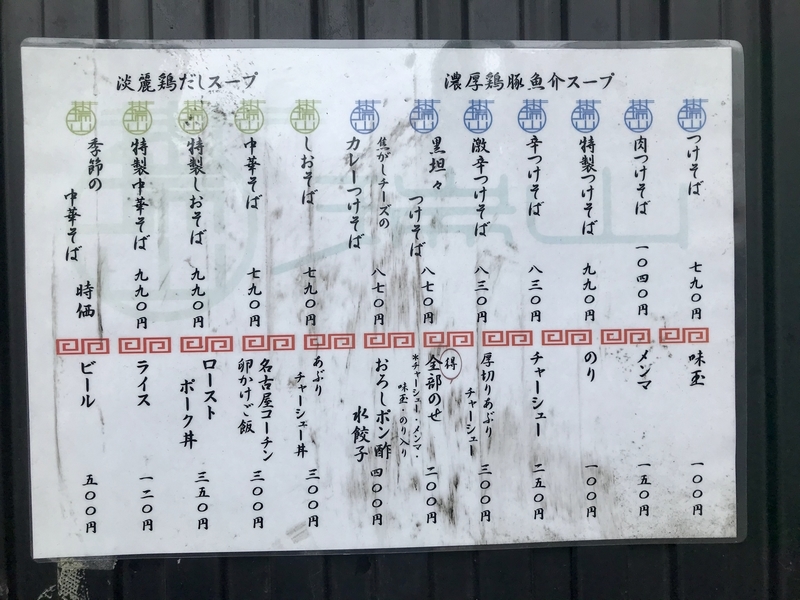 濃厚鶏豚魚介スープ
つけそば 七九〇円
肉つけそば 一〇四〇円
特製つけそば 九九〇円
辛つけそば 八三〇円
激辛つけそば 八三〇円
黒坦々
つけそば 八七〇円
焦がしチーズの
カレーつけそば 八七〇円
淡麗鶏だしスープ
しおそば 七九〇円
中華そば 七九〇円
特製しおそば 九九〇円
特製中華そば 九九〇円
季節の
中華そば 時価
味玉 一〇〇円
メンマ 一五〇円
のり 一〇〇円
チャーシュー 二五〇円
厚切りあぶり
チャーシュー 三〇〇円
得 全部のせ 二〇〇円
*チャーシュー・メンマ・
味玉・のり入り
おろしポン酢
水餃子 四〇〇円
あぶり
チャーシュー丼 三〇〇円
名古屋コーチン
卵かけご飯 三〇〇円
ロースト
ポーク丼 三五〇円
ライス 一二〇円
ビール 五〇〇円